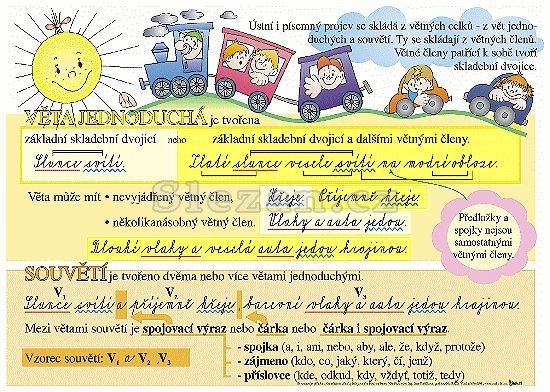 Ústní i písemný projev se skládá z větných celků - z vět jedno-
duchých a souvětí. Ty se skládají z větných členů.
Větné členy patřící k sobě tvoří
skladební dvojice.
VĚTA JEDNODUCHÁ je tvořena
základní skladební dvojicí nebo základní skladební dvojicí a dalšími větnými členy.
Slunce svítí. Zlaté slunce vesele svítí na modré obloze.
Věta může mít • nevyjádřený větný člen, Hřeje. Příjemně hřeje.
• několikanásobný větný člen. Vlaky a auta jedou.
Dlouhé vlaky a veselá auta jedou krajinou.
Předložky a
spojky nejsou
samostatnými
větnými členy.
SOUVĚTÍ je tvořeno dvěma nebo více větami jednoduchými.
V1 V2 V3
Slunce svítí a příjemně hřeje, barevné vlaky a auta jedou krajinou.
Mezi větami souvětí je spojovací výraz nebo čárka nebo čárka i spojovací výraz.
Vzorec souvětí: V1 a V2, V3
- spojka (a, i, ani, nebo, aby, ale, že, když, protože)
- zájmeno (kdo, co, jaký, který, čí, jenž)
- příslovce (kde, odkud, kdy, vždyť, totiž, tedy)